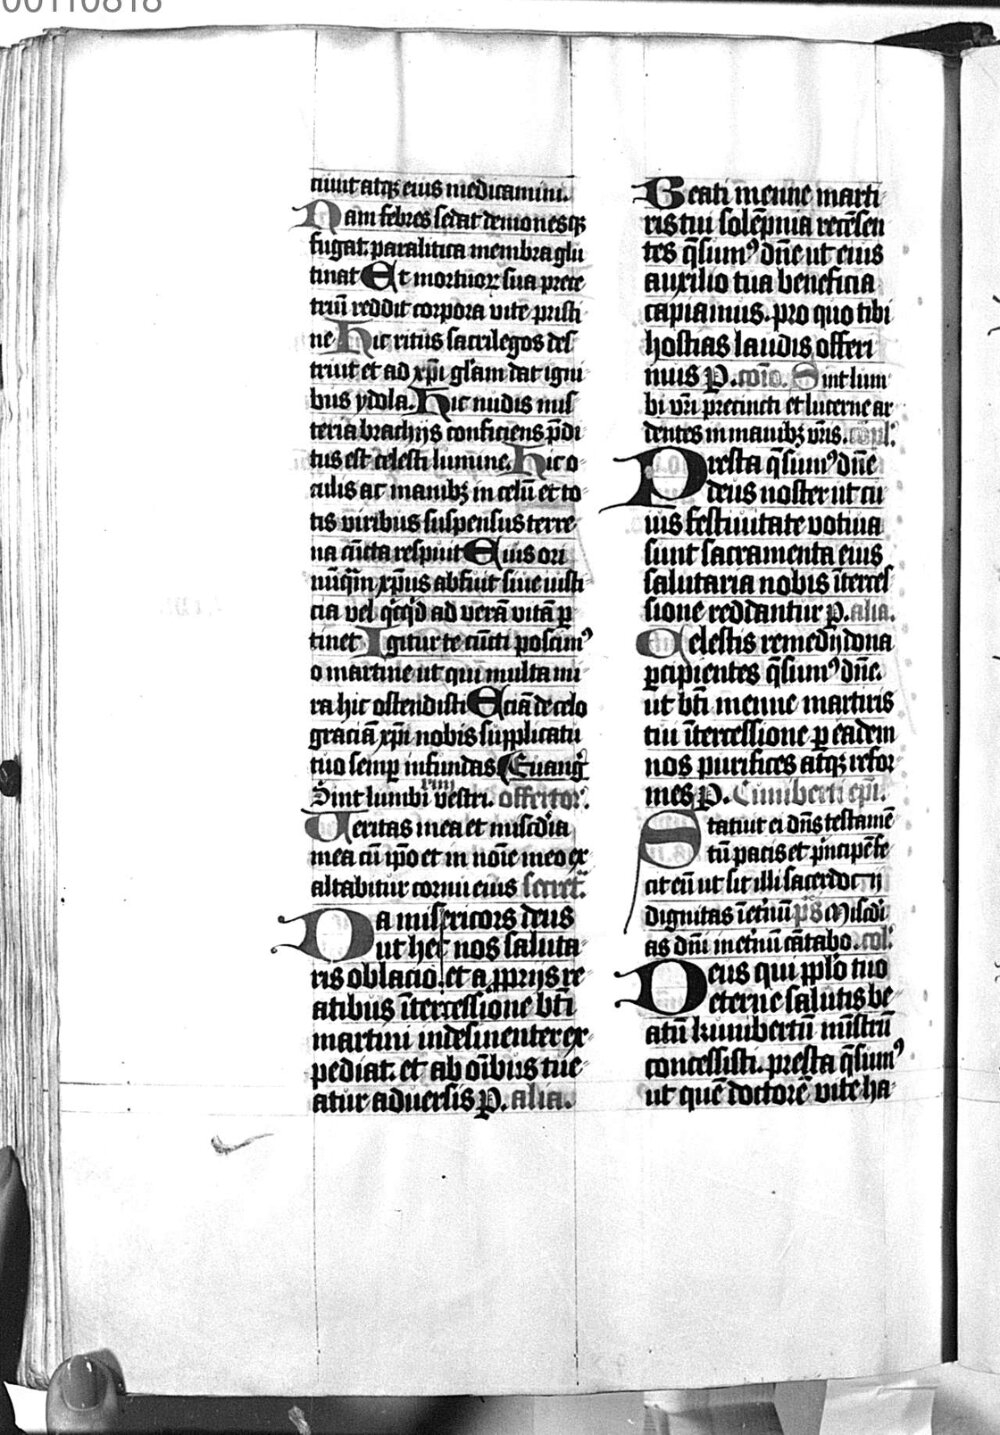 00110818
niunt atqꝫ eius medicamini.
Nam febres sedat demonesqꝫ
fugat. paralitica membra glu
tinat Et mortuoꝝ sua prece
trīū reddit corpora vite pristi
ne Hic ritus sacrilegos des
truit et ad xp̄i gl̄am dat igni
bus ydola. Hic nudis mis
teria brachijs conficiens p̄di
tus est celesti lumine. Hic o
culis ac manibꝫ in celū et to
tis viribus suspensus terre
na cūcta respuit Eius ori
nūq̄m xp̄us abfuit siue iusti
cia vel qͥcqͥd ad verā vitā ꝑ
tinet Igitur te cūcti poscimꝰ
o martine ut qui multa mi
ra hic ostendisti Eciā de celo
graciā xp̄i nobis supplicatu
tuo semꝑ infundas Euang̅
Sint lumbi vestri. offertor̄.
Veritas mea et misc̄dia
mea cū ip̄o et in noīe meo ex
altabitur cornu eius secret̄.
Da misericors deus
ut hec nos saluta
ris oblacio. et a ꝓprijs re
atibus īt̄cessione bt̄i
martini indesinenter ex
pediat. et ab oībus tue
atur aduersis P. alia.
Beati menne marti
ris tui solēpnia recēsen
tes q̄sumꝰ dn̄e ut eius
auxilio tua beneficia
capiamus. pro quo tibi
hostias laudis offeri
mus P. cōīo. Sint lum
bi vr̄i precincti et lucerne ar
dentes in manibꝫ vr̄is. cōpl̄.
Presta q̄sumꝰ dn̄e
deus noster ut cu
ius festiuitate votiua
sunt sacramenta eius
salutaria nobis īterces
sione reddantur P. alia.
Celestis remedij dona
ꝑcipientes q̄sumꝰ dn̄e.
ut bt̄i menne martiris
tui īt̄cessione ꝑ eadem
nos purifices atqꝫ refor
mes P. Cuniberti ep̄i.
Statuit ei dn̄s testamē
tū pacis et pͥncipē fe
cit eū ut sit illi sacerdocij
dignitas īet̄nū p̄s Misc̄di
as dn̄i in et̄nū cātabo. col̄.
Deus qui pplo tuo
eterne salutis be
atū kunibertū mīstrū
concessisti. presta q̄sumꝰ
ut quē doctorē vite ha